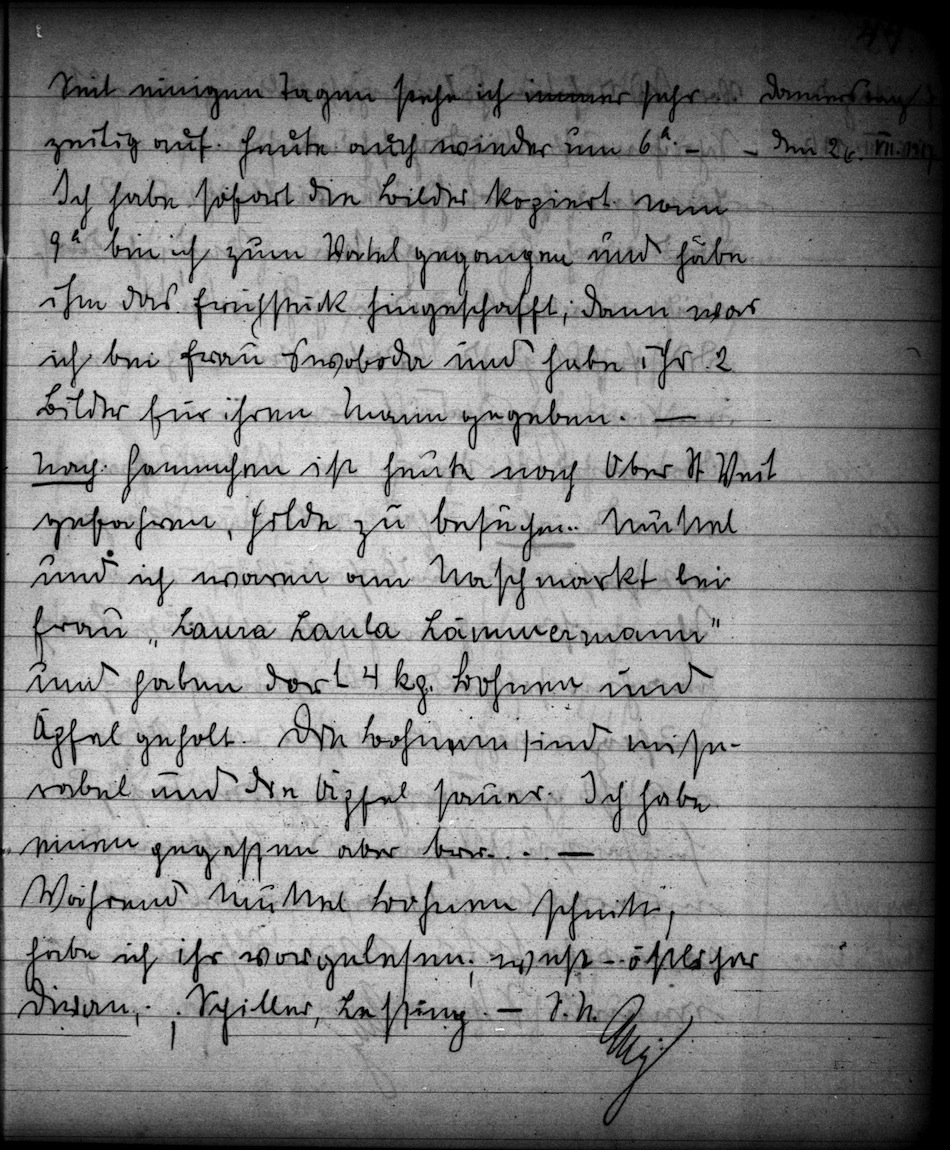 Seit einigen Tagen stehe ich immer sehr Donnerstag
zeitig auf. Heute auch wieder um 6ʰ. – – den 26. VII. 1917
Ich habe sofort die Bilder kopiert
9ʰ bin ich zum Vatel gegangen und habe
ihm das Frühstück hingeschafft; dann war
ich bei Frau Swoboda und habe ihr 2
Bilder für ihren Mann gegeben. —
Nach. Hannchen ist heute nach Ober St Veit
gefahren, Hilde zu besuchen. Muttel
und ich waren am Naschmarkt bei
Frau „Laura Laula Lämmermann"
und haben dort 4 kg. Bohnen und
Äpfel geholt. Die Bohnen sind mise-
rabel und die Äpfel sauer. Ich habe
einen gegessen aber brr. . . —
Während Muttel Bohnen schnitt,
habe ich ihr vorgelesen; west-östlicher
Divan, Schiller, Lessing. –